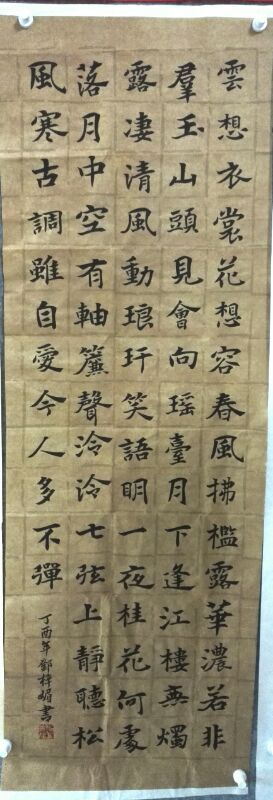 雲想衣裳花想容春風拂檻露華濃若非
羣玉山頭見會向瑶臺月下逢江樓無燭
露凄清風動琅玕笑語明一夜桂花何處
落月中空有軸簾聲泠泠七弦上靜聽松
風寒古調雖自愛今人多不彈
丁酉年鄧梓媚書